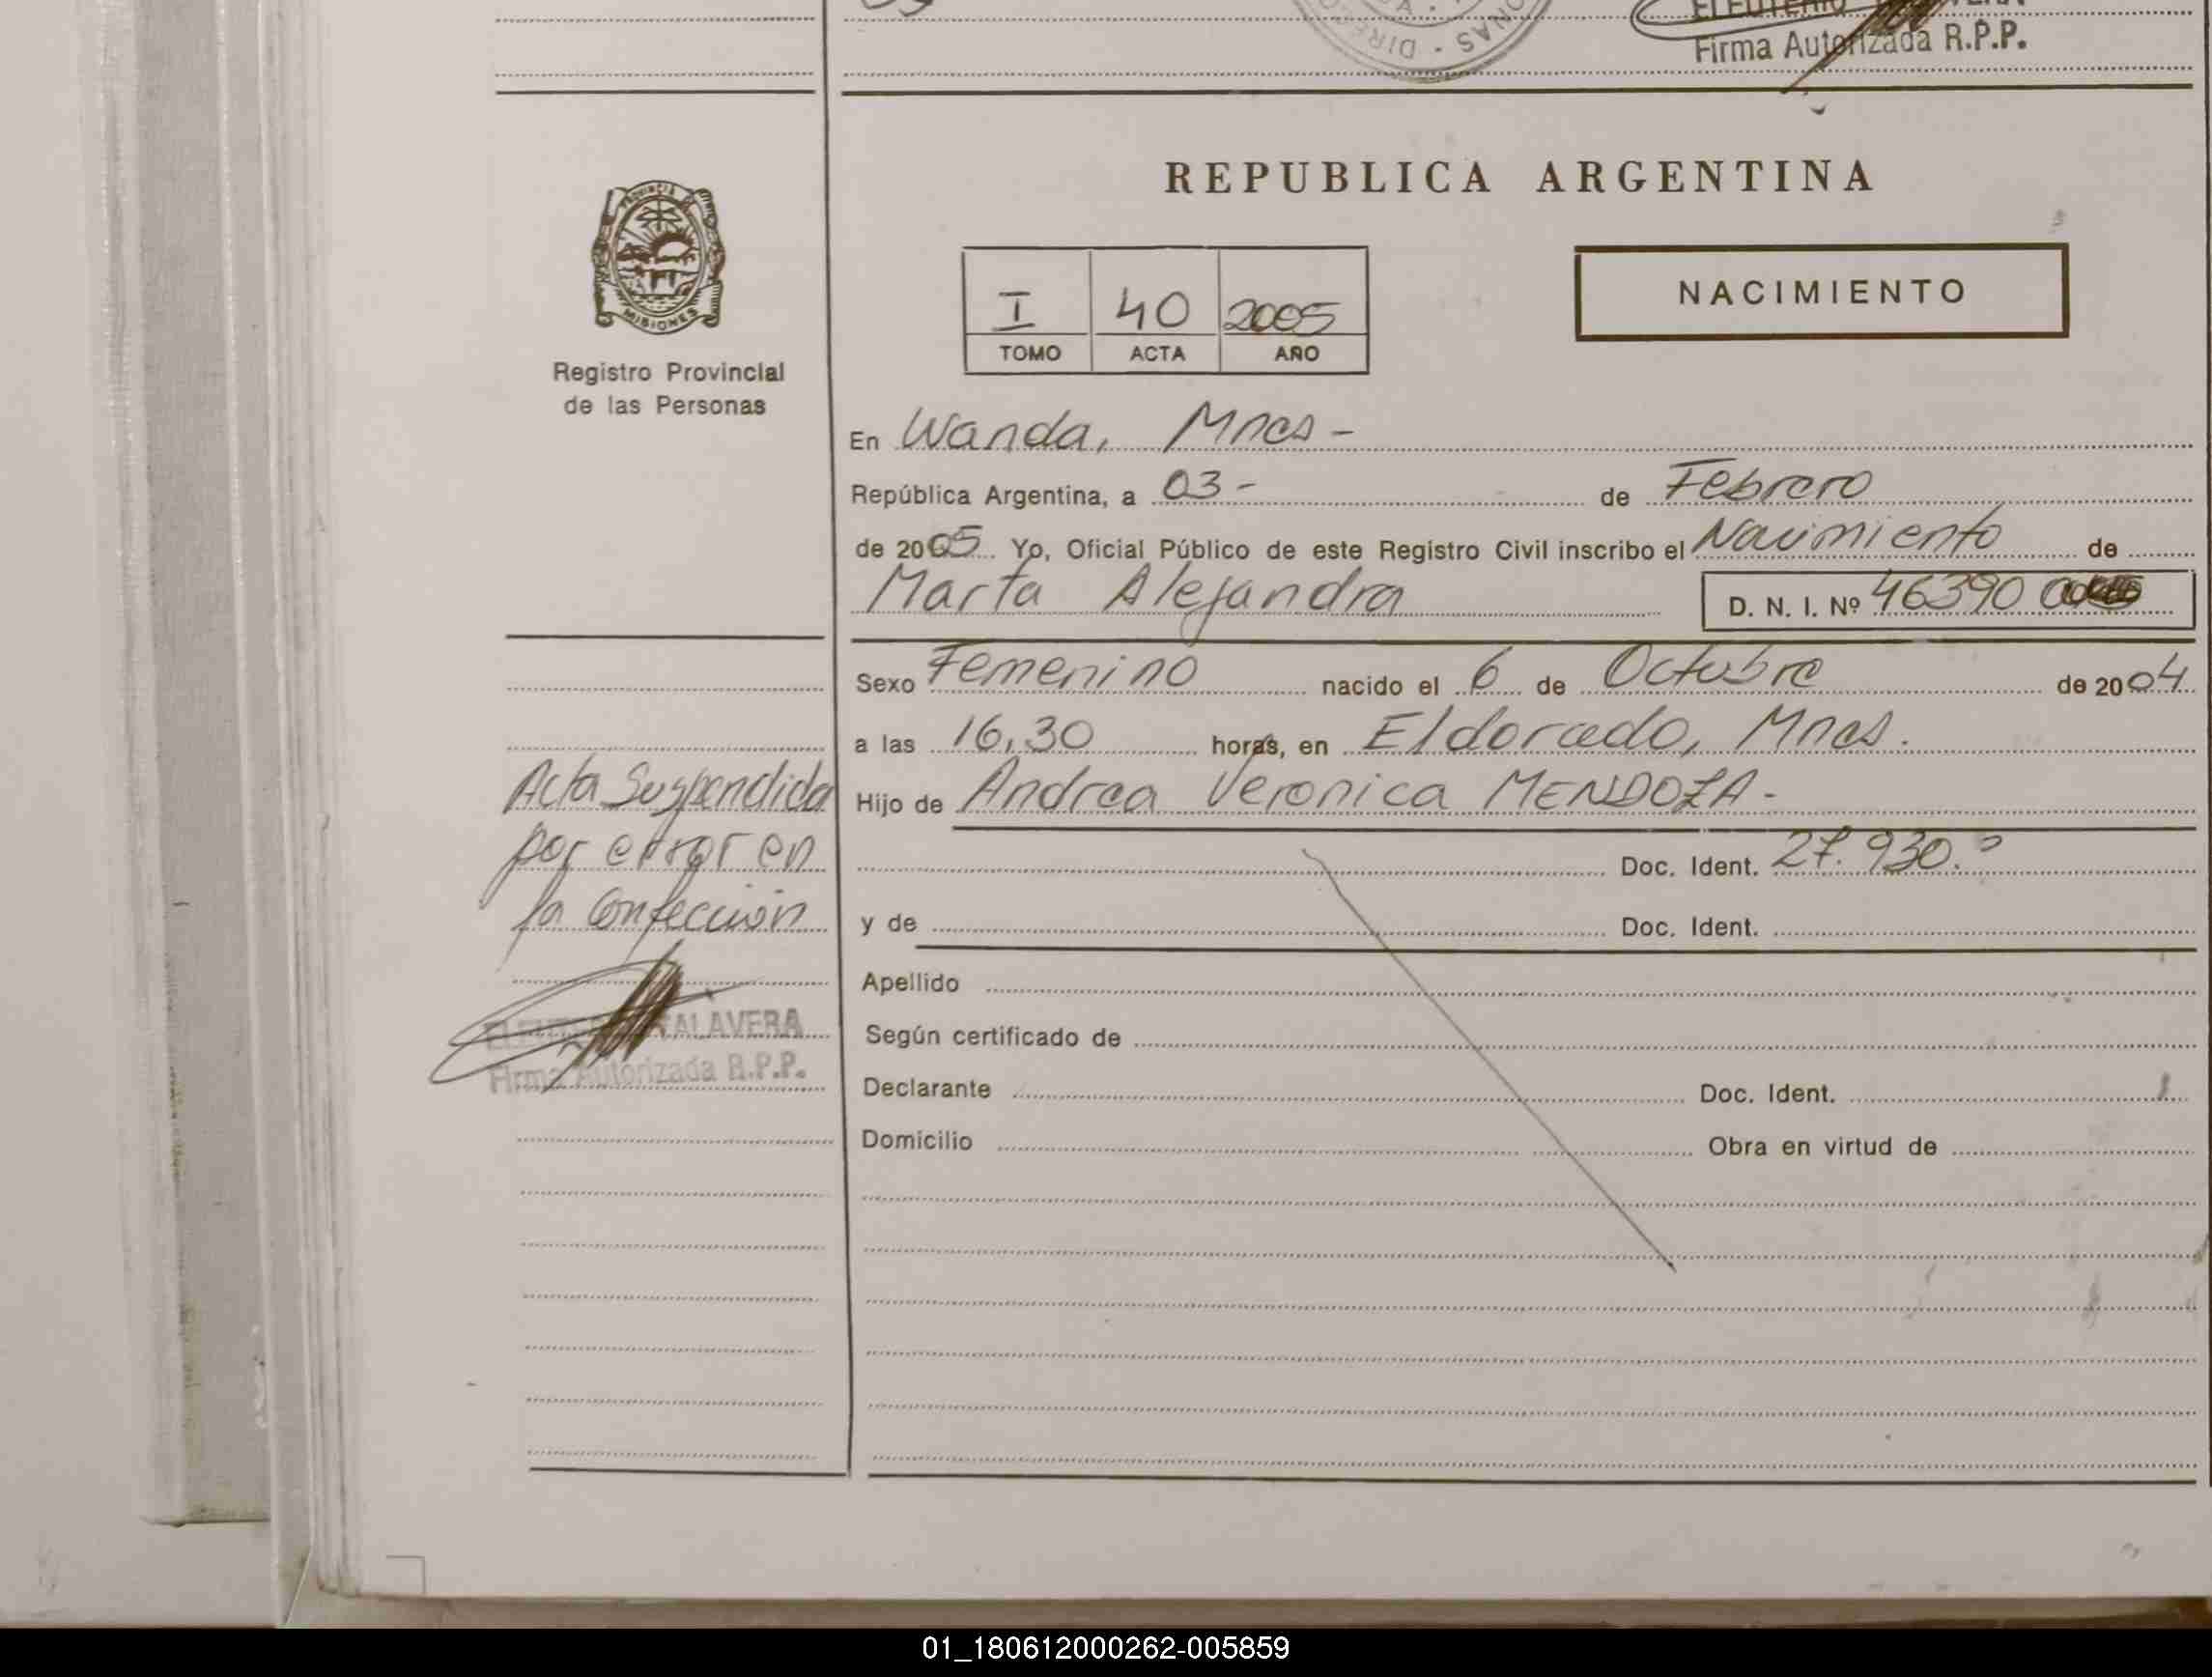 Firma Autorizada R.P.P.
REPUBLICA ARGENTINA
MISIONES
Registro Provincial
de las Personas
I 40 2005
TOMO ACTA AÑO
NACIMIENTO
En Wanda, Mnes -
República Argentina, a 03 - de Febrero
de 2005 Yo, Oficial Público de este Registro Civil inscribo el Nacimiento de
Marta Alejandra D. N. I. Nº 46390
Sexo Femenino nacido el 6 de Octubre de 2004
a las 16,30 horas, en Eldorado, Mnes.
Hijo de Andrea Veronica MENDOZA -
Doc. Ident. 27.930.
y de Doc. Ident.
Apellido
Según certificado de
Declarante Doc. Ident.
Domicilio Obra en virtud de
Acta Suspendida
por error en
la Confección
TALAVERA
Firma Autorizada R.P.P.
01_180612000262-005859